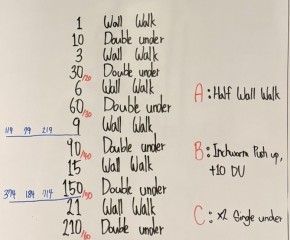 1 Wall Walk
10 Double under
3 Wall Walk
30/20 Double under
6 Wall Walk
60/30 Double under
119 99 219 9 Wall Walk
90/40 Double under
15 Wall Walk
374 184 114 150/50 Double under
21 Wall Walk
210/60 Double under
A: Half Wall Walk
B: Inchworm Push up,
+10 DU
C: x2 Single under